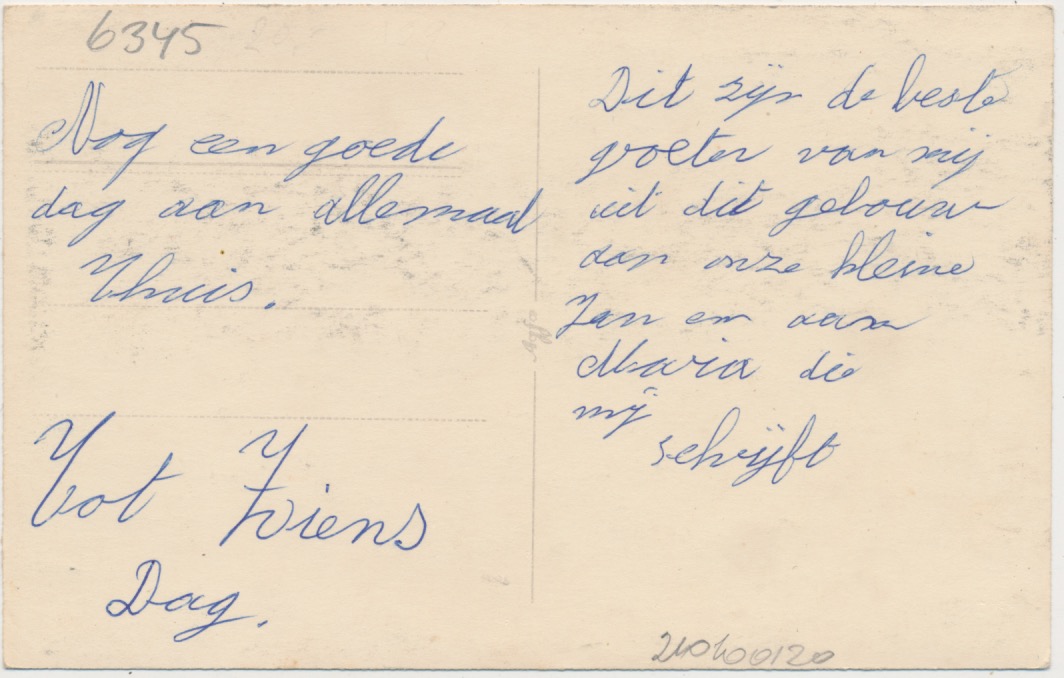 6345
Nog een goede
dag aan allemaal
Thuis.
Tot Ziens
Dag.
Dit zijn de beste
groeten van mij
uit dit gebouw
aan onze kleine
Jan en aan
Maria die
mij
schrijft
210400120